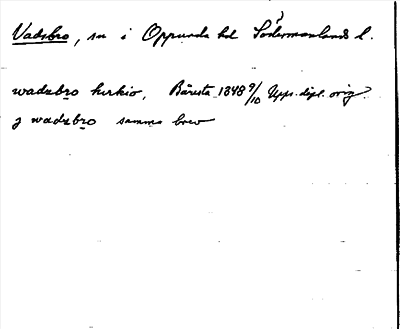 Vadsbro, sn i Oppunda hd Södermanlands l.
wadzbro kirkio, Båresta 1348 9/10 Upps. dipl. orig.
j wadzbro samma brev